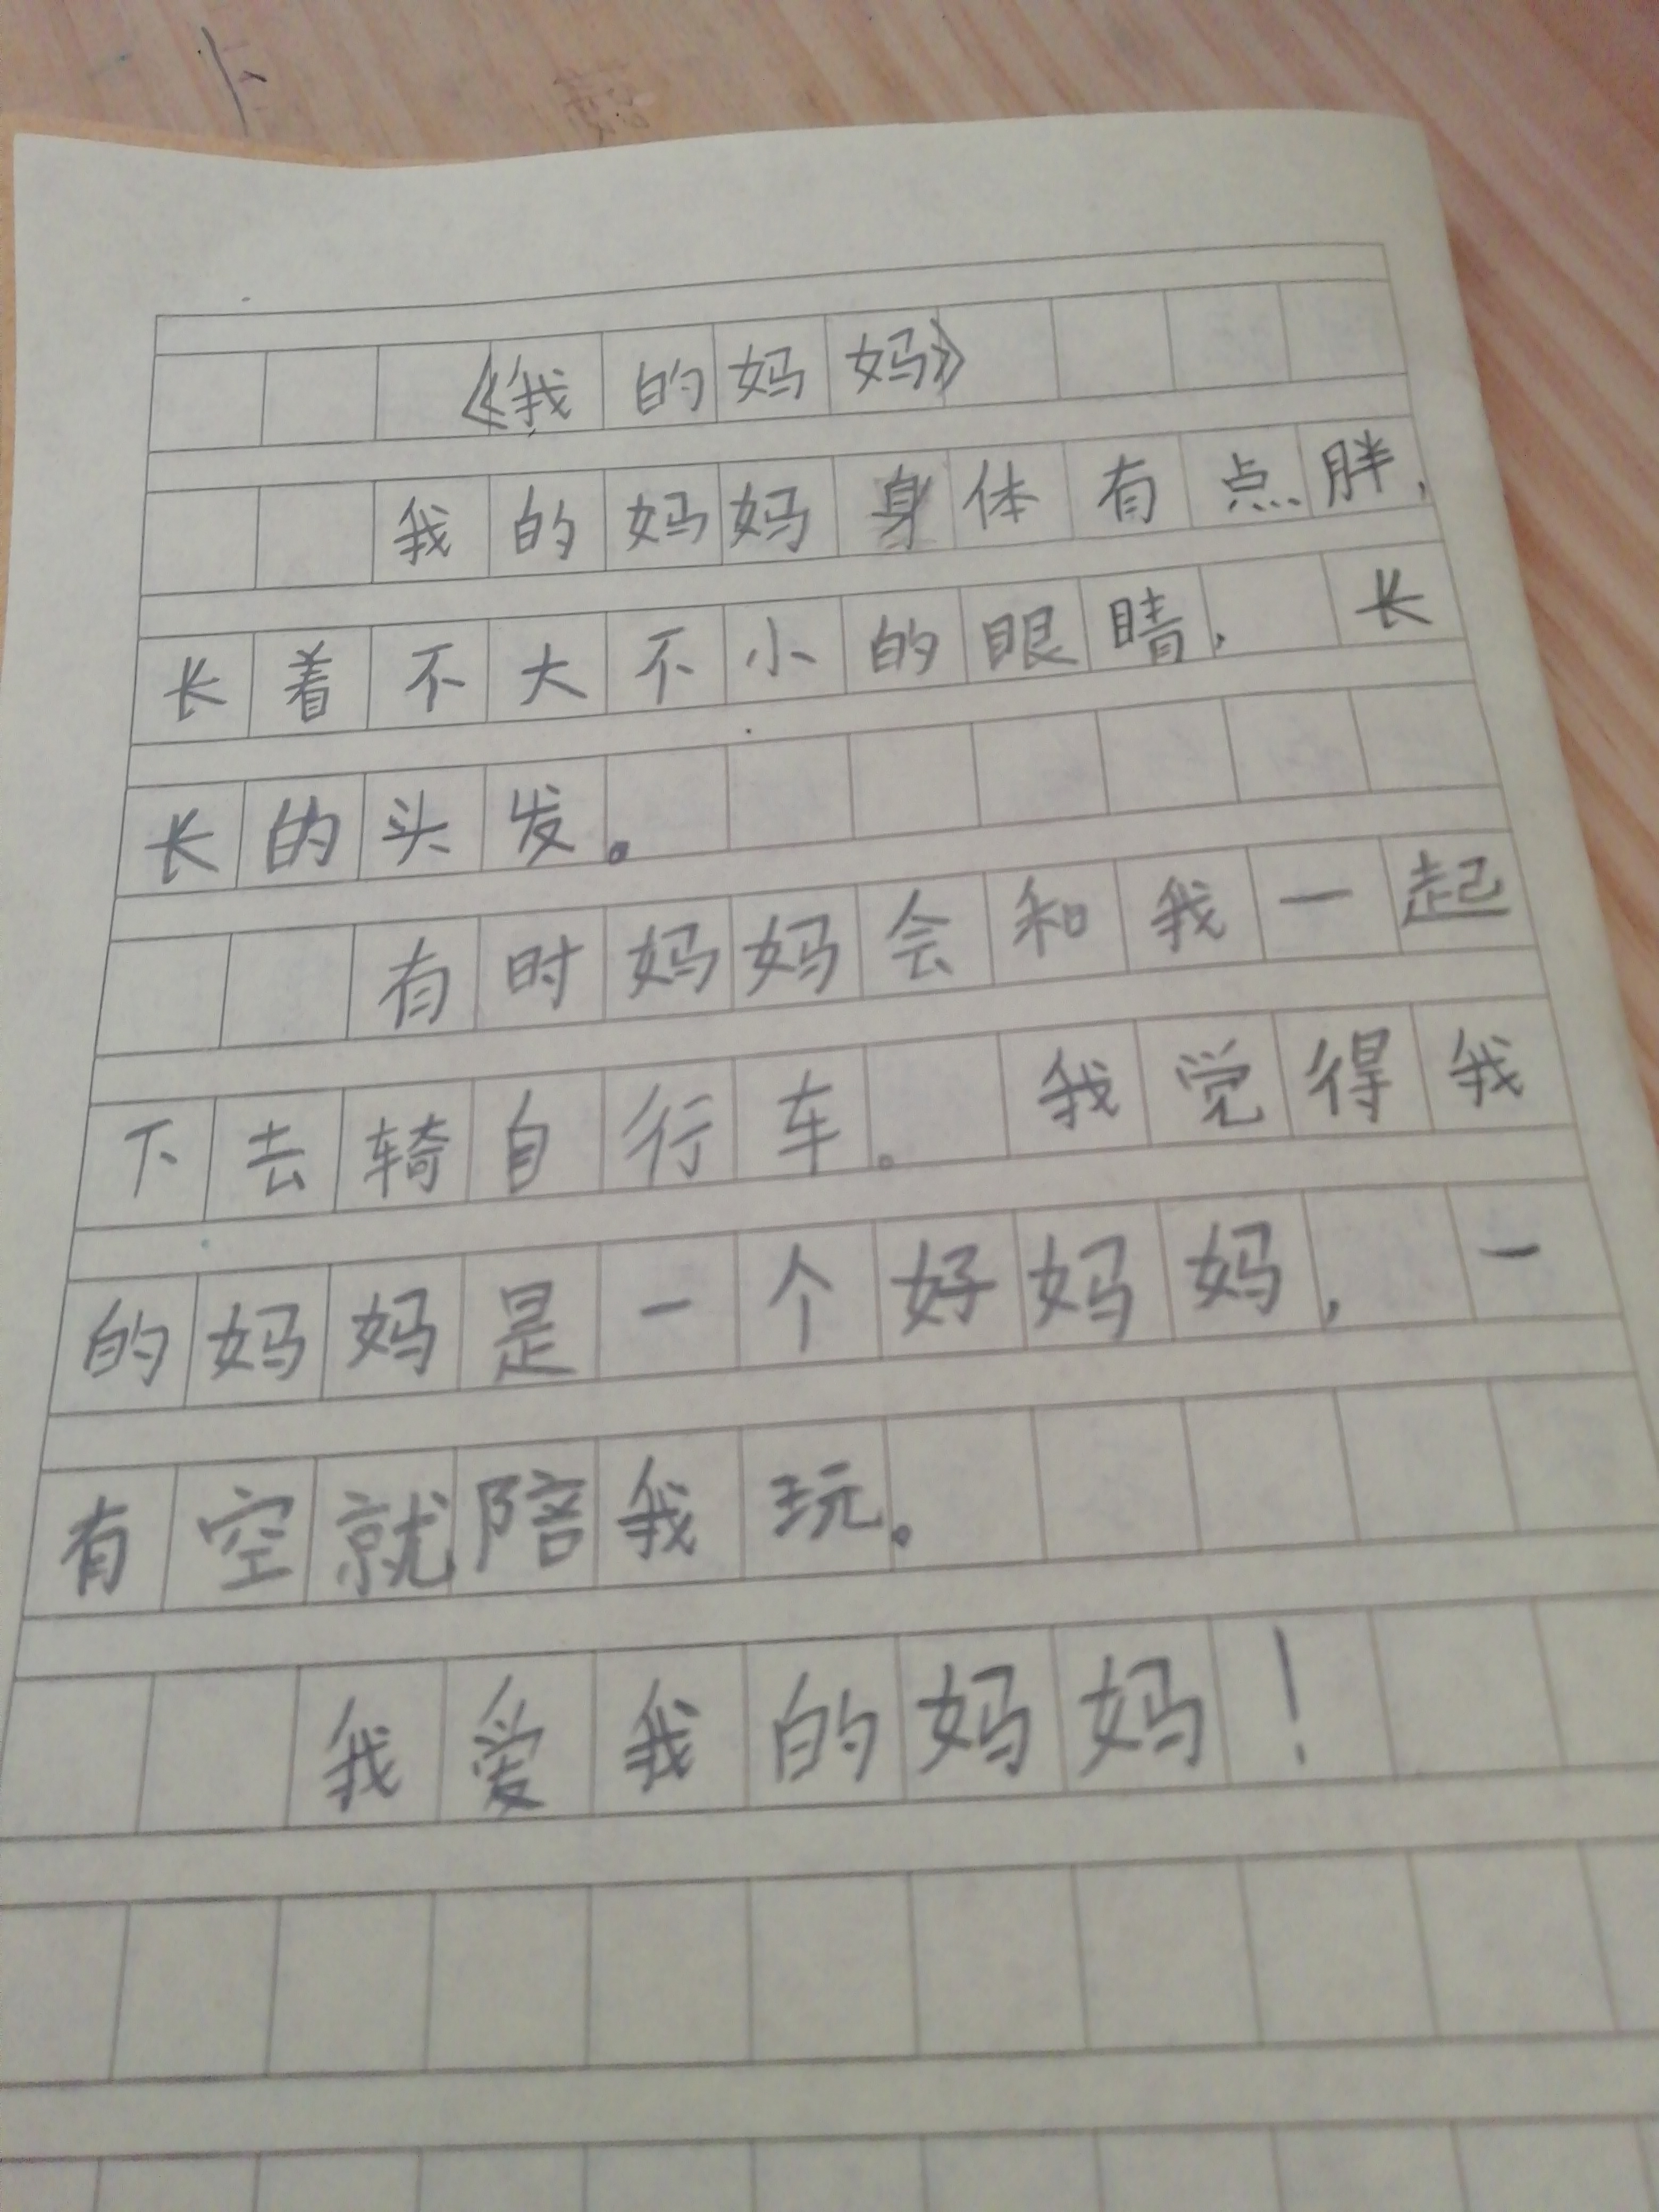 《我的妈妈》
我的妈妈身体有点胖,
长着不大不小的眼睛, 长
长的头发。
有时妈妈会和我一起
下去骑自行车。 我觉得我
的妈妈是一个好妈妈, 一
有空就陪我玩。
我爱我的妈妈!